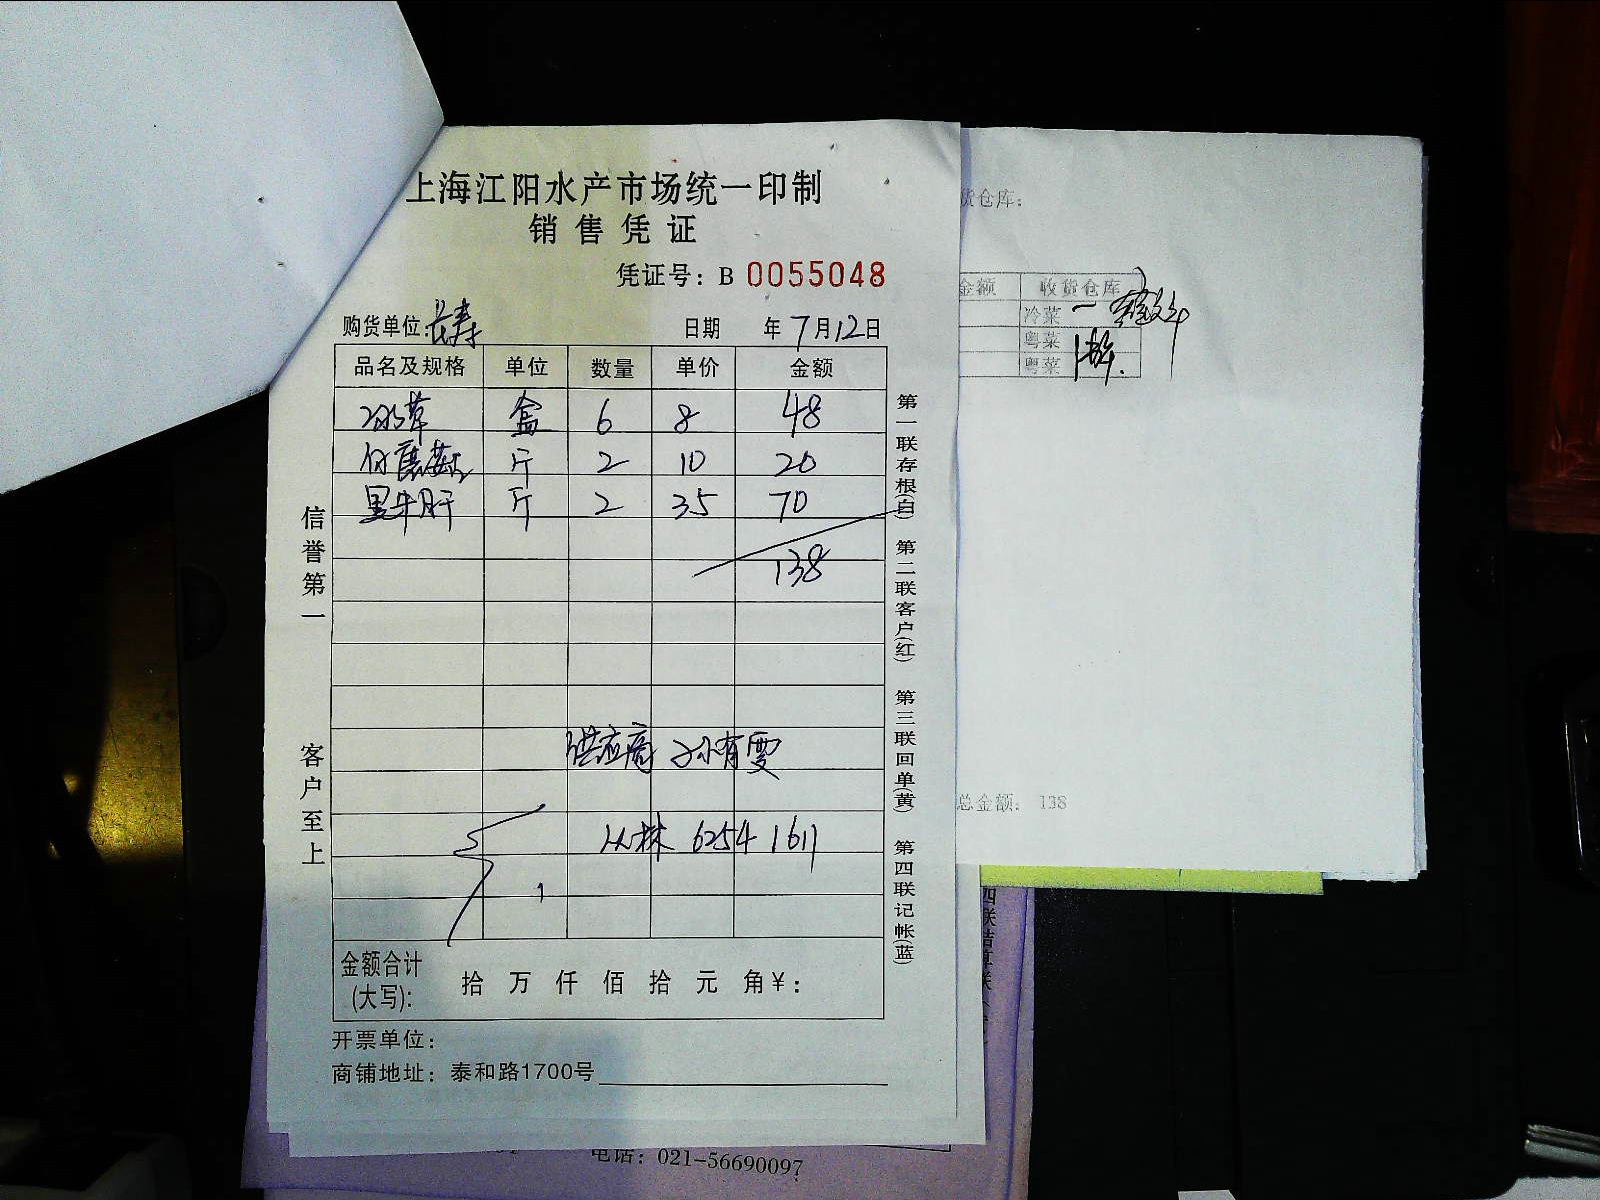 上海江阳水产市场统一印制
销售凭证
凭证号：B 0055048
购货单位：长寿 日期 年7月12日
品名及规格 单位 数量 单价 金额
冰草 盒 6 8 48
斤 2 10 20
黑牛肝 斤 2 35 70
138
供应商 孙有雯
丛林 6254 1611
金额合计 (大写)： 拾 万 仟 佰 拾 元 角¥：
开票单位：
商铺地址：泰和路1700号
信誉第一
客户至上
第一联存根(白) 第二联客户(红) 第三联回单(黄) 第四联记帐(蓝)
货仓库：
金额 收货仓库
冷菜
粤菜
粤菜
总金额： 138
电话：021-56690097